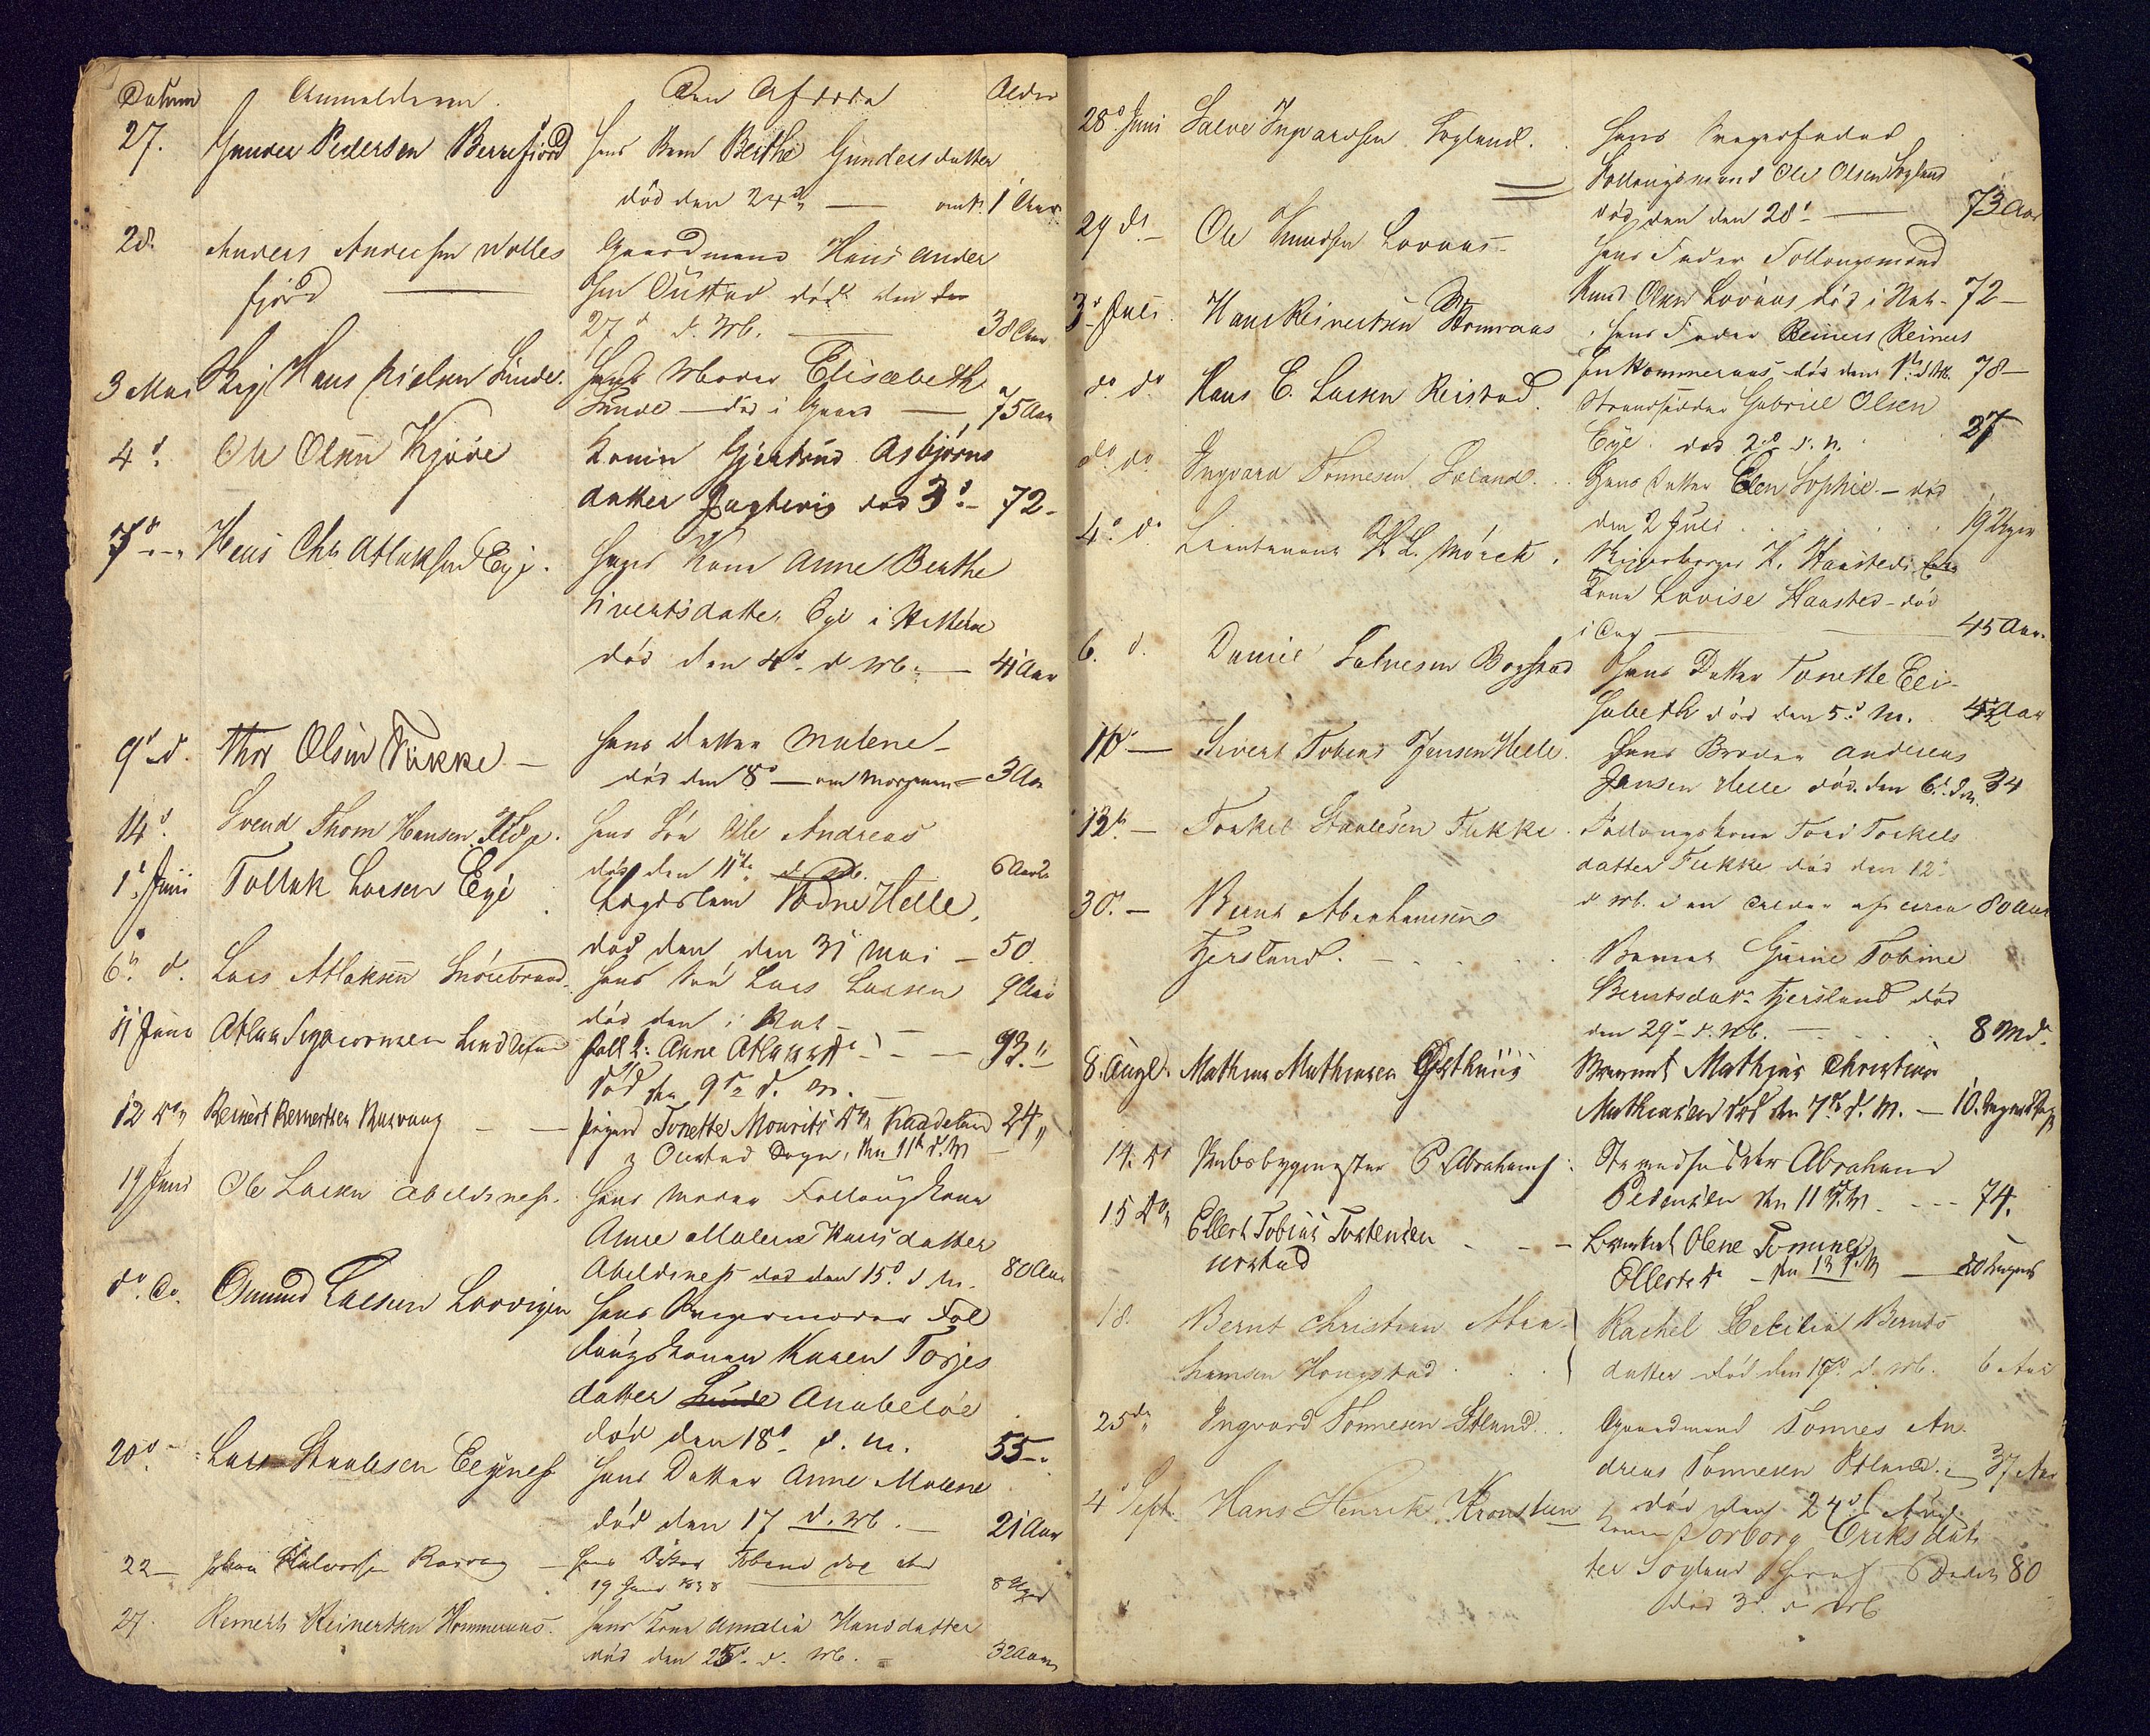 Datum Anmelderen. Den Afdøde Alder
27. Gunder Pedersen Berrefjord hans Barn Berthe Gundersdatter
død den 24d — omtr. 1 Aar
28. Anders Andersen Wolles Gaardmand Hans Ander
fjord sen Oustad død den
27d d. Mb. — 38 Aar
3 Mai Hans Nielsen Sunde. hans Moder Elisabeth
Sunde — død i Gaar — 75 Aar
4d. Ole Olsen Kjøre Konen Gjertrud Asbjørns
datter død 3d. — 72 -
7d — Hans Chr. Atlaksen Eye. hans Kone Anne Berthe
Sivertsdatter Eye i Hitterøe
død den 4d. d. Mb. — 41 Aar
9d d. Thor Olsen Fukke — hans Datter Malene —
død den 8d — om Morgenen — 3 Aar
14d. Svend Thom Hansen hans Søn Ole Andreas
død den 11te d. Mb. 6 Aar
1d Juni Tollak Larsen Eye Logislem Helle,
død den den 31 Mai — 50
6te d. Lars Atlaksen hans Søn Lars Larsen 9 Aar
død den i Nat —
11 Juni Atlak Anne Atlaksdr — — 93. "
død den 9de d. M.
12 do Reinert Reinertsen Rasvaag — — pigen Tonette Mourits dr Kaadeland 24 "
Oustad Sogn, den 11te d. M —
19 Juni Ole Larsen Abeldsnes. hans Moder Follougskone
Anne Malene Hansdatter
Abeldsnes død den 15d. d. m. 80 Aar
do do. Omund Larsen Larvigen hans Svigermoder Fol
lougskonen Karen Torjes
datter Sunde Anabeløe
død den 18d. d. m. 55 —
20d. — Lars Staalesen Egenes hans Datter Anne Malene
død den 17 d. Mb. — 21 Aar
22 — Johan Halvorsen Rasvag — hans død den
19 Juni 8 Uger
27. Reinert Reinertsen Hommeraas. hans Kone Amalia Hansdatter
død den 25d. d. Mb. — 32 Aar
28d. Juni Salve Ingvardsen Sogland. hans Svigerfader
Follougsmand Ole Olsen Sogland
død den den 28d. — 73 Aar
29 do — Ole Knudsen Lovaas — hans Fader Follougsmand
Knud Olsen Lovaas død i Nat - 72 —
3d Juli. Hans Reinertsen Hommeraas hans Fader Reinert Reinert
sen Hommeraas død den 1te d. Mb. 78 —
do do Hans E. Larsen Reistad. Strandsidder Gabriel Olsen
Eye. død 2d d. M. 27
do do Ingvard Tønnesen Søland. hans Datter Elen Sophie. — død
den 2 Juli . . . . . . 19 Uger
4d d. Lieutenant H. L. Mörch. K. Haasteds
Kone Lovise Haasted — død
i Dag — 45 Aar
6. d. Daniel Salvesen Bogstad hans Datter Tonette Eli-
sabeth død den 5d. M. Aar
10 — Sivert Tobias Jensen Helle. hans Broder Andreas
Jensen Helle død. den 6d. d. m. 34
12te — Torkel Staalesen Fukke. Follougskone Tori Torkels
datter Fukke død den 12d
d. Mb. i en Alder af circa 80 Aar
30d. — Bernt Abrahamsen
Tjersland. — . . . . Barnet Gurine Tobine
Berntsdatr Tjersland død
den 29d — d. Mb. — . . . 8 Md.
8. Augl. Mathias Mathiasen Østhuus Barnet Mathias Christian
Mathiasen død den 7de d. M. — 10.
14. do P. Abrahams. Strandsidder Abraham
Pedersen den 11 d. M. - - - 74.
15 do Ellert Tobias Torkensen — — Barnet Olene Tomine
urstad Ellerts dr — den 13 d. M —
18. Bernt Christian Abra- Rachel Cecilia Bernts
hamsen Haugstad . . datter død den 17d. d. Mb. 6 Aar
25de Ingvard Tønnesen Østland. . Gaardmand Tønnes An-
dreas Tønnesen Østland. — 37 Aar
død den 24d Aug.
4d Sept. Hans Henrik Kronstien Konen Torborg Eriksdat-
ter Sogland 80
død 3d. d. Mb